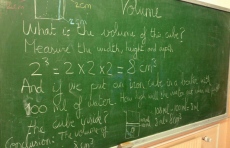 2cm
Volume
2cm
What is the volume of the cube?
Measure the width, height and depth
2³ = 2 × 2 × 2 = 8 cm³
And if we put an iron cube in a beaker with
100 ml of water. How high will the water
the cube inside?
Conclusion: The volume
8 cm³